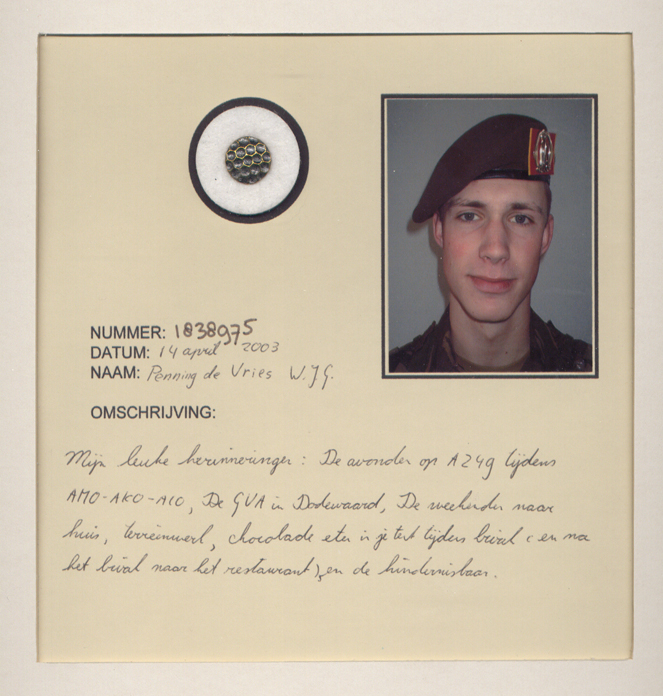 NUMMER: 1838975
DATUM: 14 april 2003
NAAM: Penning de Vries W.J.G.
OMSCHRIJVING:
Mijn leuke herinneringen: De avonden op A249 tijdens
AMO-AKO-AIO, De GVA in Dodewaard, De weekenden naar
huis, terreinwerk, chocolade eten in je tent tijdens bival (en na
het bival naar het restaurant), en de hindernisbaan.